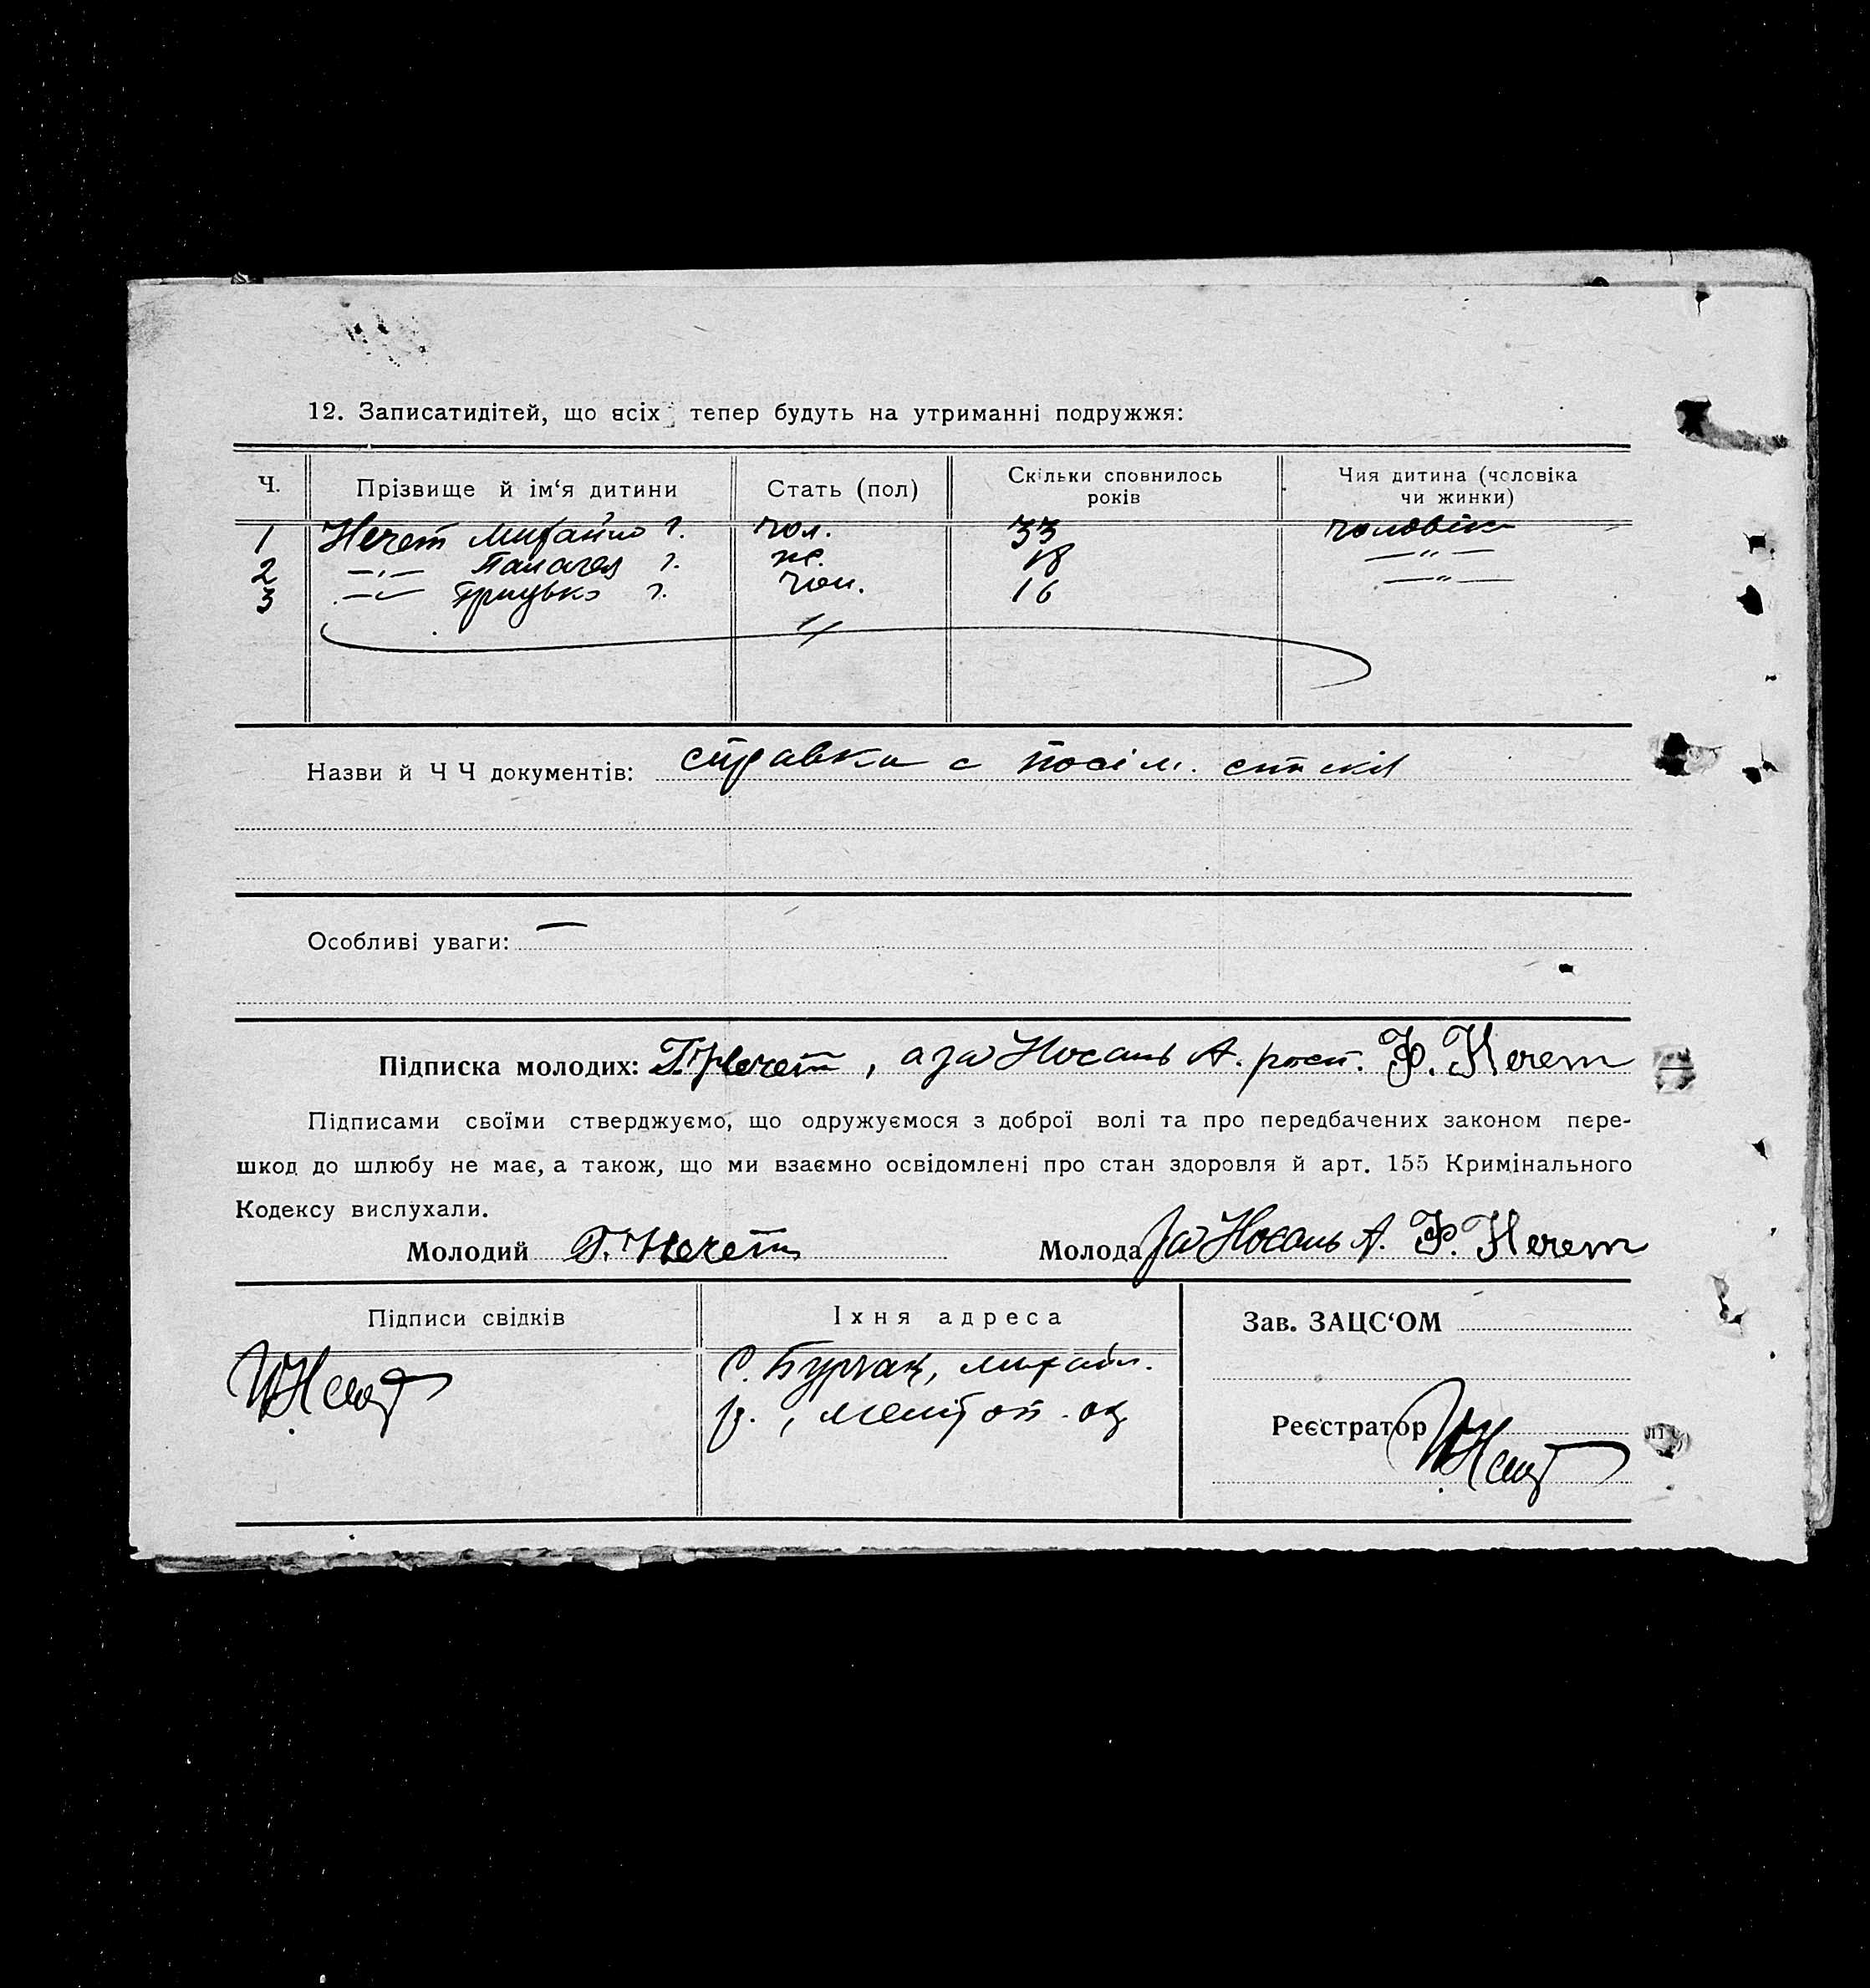 12. Записатидітей, що всіх тепер будуть на утриманні подружжя:
Ч. Прізвище й ім‘я дитини Стать (пол) Скільки сповнилось років Чия дитина (чоловіка чи жинки)
1 Нечет Михайло Г. чол. 33 чоловіка
2 —„— Палагея Г. ж. 18 —„—
3 —„— Грицько Г. чол. 16 —„—
Назви й Ч Ч документів: справка с посім. списка
Особливі уваги: —
Підписка молодих: Г. Нечет, а за Носань А. росп. Ф. Нечет
Підписами своїми стверджуємо, що одружуємося з доброї волі та про передбачених законом пере-
шкод до шлюбу не має, а також, що ми взаємно освідомлені про стан здоровля й арт. 155 Кримінального
Кодексу вислухали.
Молодий Г. Нечет Молода за Носань А. Ф. Нечет
Підписи свідків Їхня адреса Зав. ЗАЦС‘ОМ
С. Бурчак, михайл.
р., мелітоп. ок
Реєстратор